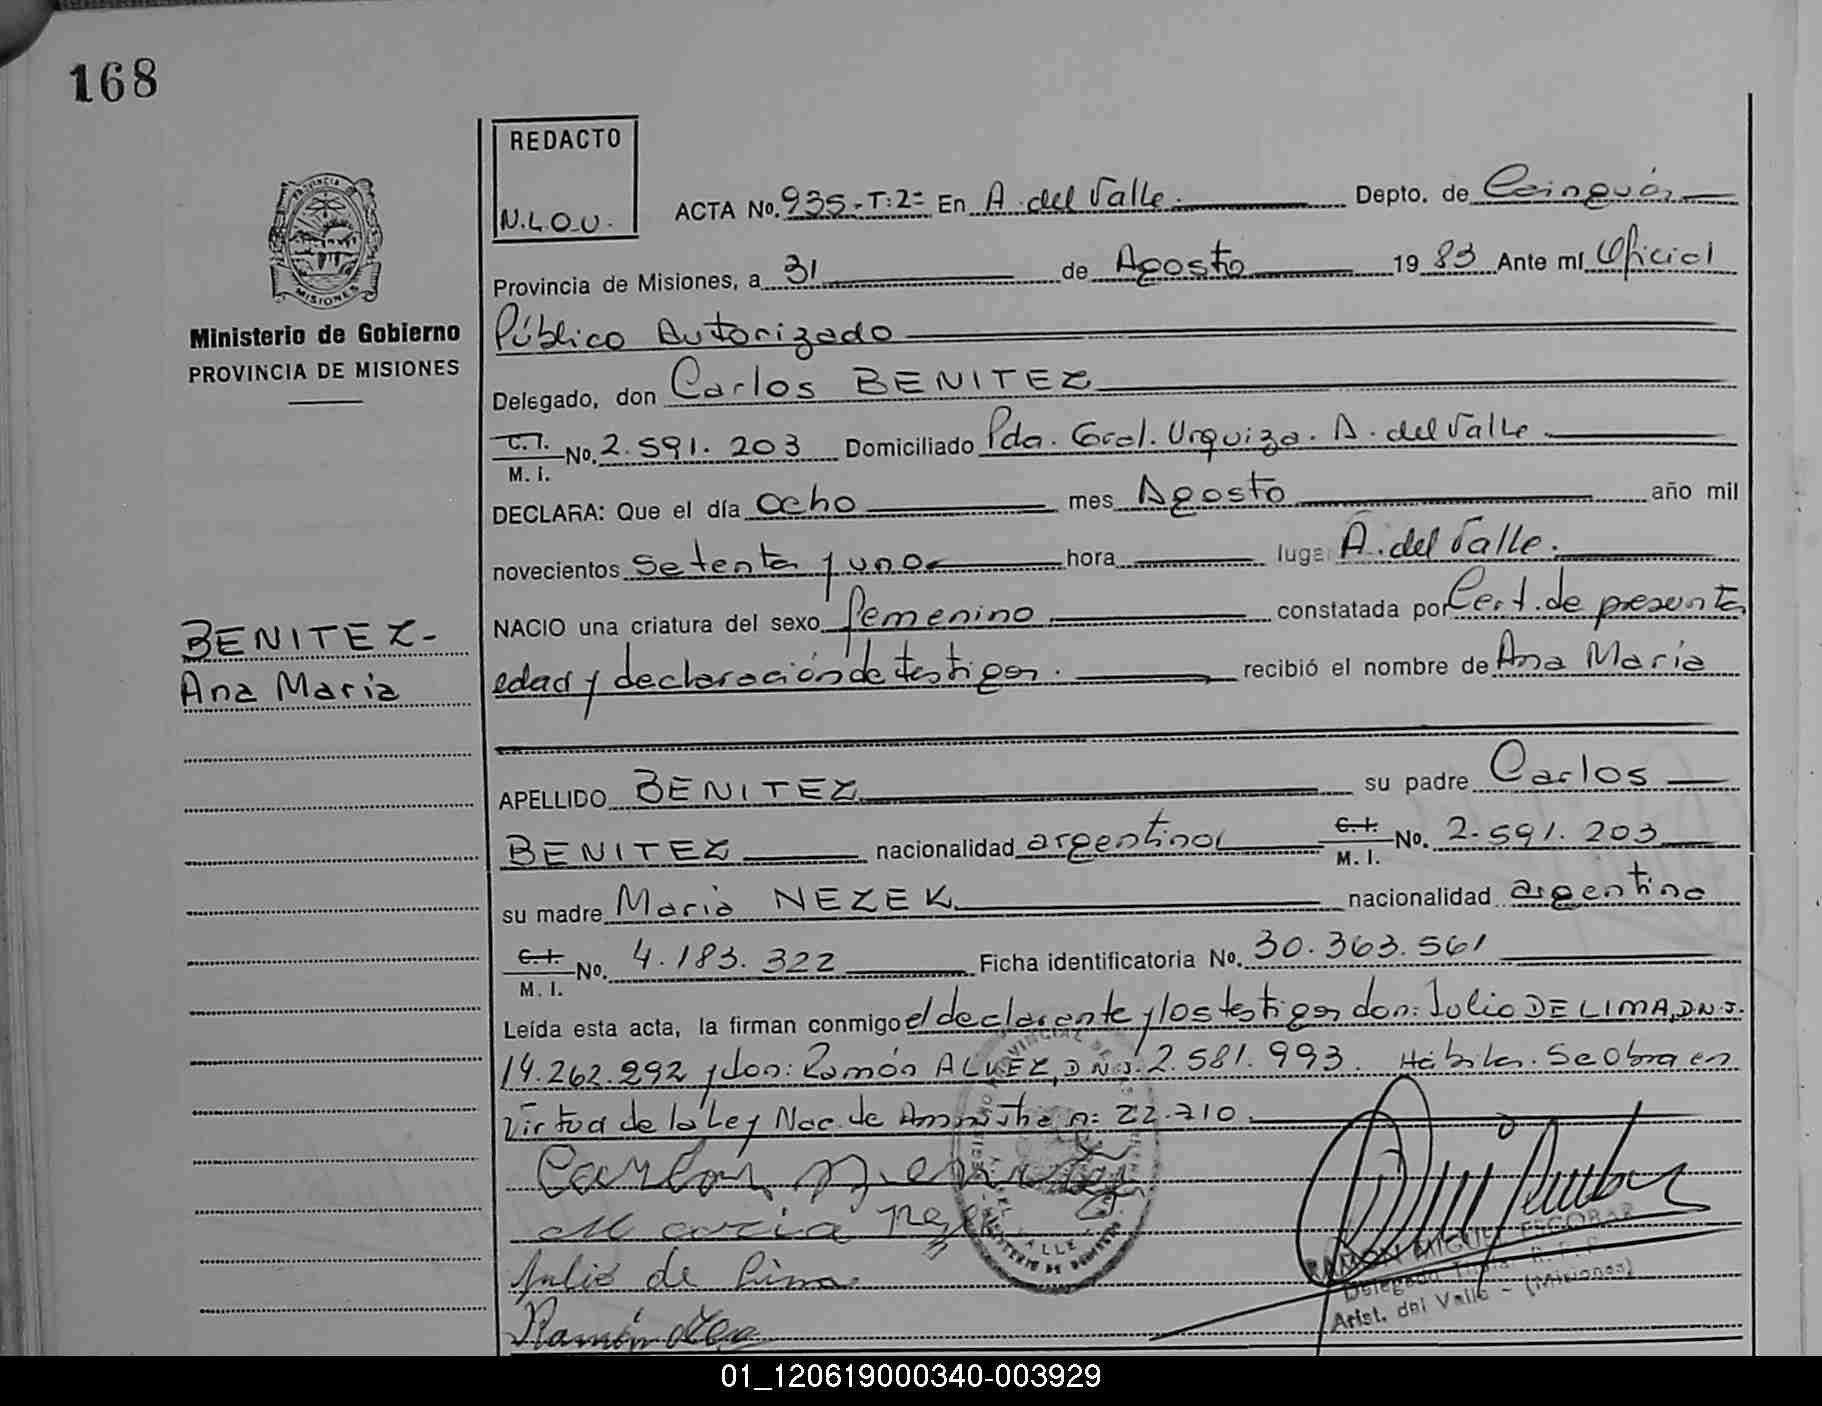 168
REDACTO
N.L.O.U.
ACTA No. 935-T:2= En A. del Valle. Depto. de Cainguás
Provincia de Misiones, a 31 de Agosto 19 83 Ante mí Oficial
MISIONES
Ministerio de Gobierno
PROVINCIA DE MISIONES
Público Autorizado
Delegado, don Carlos BENITEZ
C.I. M.I. No. 2.591.203 Domiciliado Pda. Gral. Urquiza. A. del Valle
DECLARA: Que el día ocho mes Agosto año mil
novecientos setenta y uno hora lugar A. del Valle.
NACIO una criatura del sexo femenino constatada por Cert. de presunta
BENITEZ-
Ana Maria
edad y declaración de testigos. recibió el nombre de Ana Maria
APELLIDO BENITEZ su padre Carlos
BENITEZ nacionalidad argentina C.I. M.I. No. 2.591.203
su madre Maria NEZEK nacionalidad argentina
C.I. M.I. No. 4.183.322 Ficha identificatoria No. 30.363.561
Leída esta acta, la firman conmigo el declarante y los testigos don: Julio DE LIMA, D.N.I.
14.262.292 y don: Ramón ALVEZ, D.N.I. 2.581.993. Hábiles. Se obra en
virtud de la Ley Nac. de Amnistia n: 22.710.
Carlos Benitez
Maria Nezek
Julio de Lima
Ramón
RAMON MIGUEL ESCOBAR
Delegado Titular R.P.P.
Arist. del Valle - (Misiones)
01_120619000340-003929